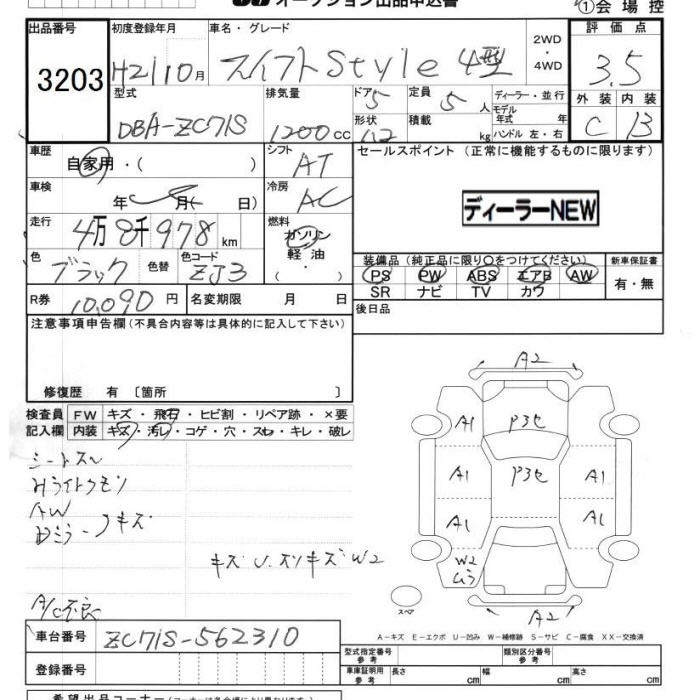 オークション出品申込書
①会場控
出品番号 3203
初度登録年月 H21 10月
車名・グレード スイフトStyle 4型
2WD・4WD
評価点 3.5
外装 C 内装 B
型式 DBA-ZC71S
排気量 1200cc
ドア 5
形状
定員 5人
積載 kg
ディーラー・並行
モデル年式 年
ハンドル 左・右
車歴 自家用・( )
シフト AT
セールスポイント (正常に機能するものに限ります)
ディーラーNEW
車検 年 月( 日)
冷房 AC
走行 4万8千978km
燃料 ガソリン・軽油・( )
色 ブラック 色替
色コード ZJ3
装備品(純正品に限り○をつけてください)
PS PW ABS エアB AW
SR ナビ TV カワ
新車保証書 有・無
R券 10,090円
名変期限 月 日
後日品
注意事項申告欄(不具合内容等は具体的に記入して下さい)
修復歴 有 〔箇所 〕
検査員記入欄
FW キズ・飛石・ヒビ割・リペア跡・×要
内装 キズ・汚レ・コゲ・穴・スレ・キレ・破レ
シートスレ
Hライトクモリ
AW
Dミラーキズ
キズ U.スリキズ W2
A/C不良
A2
A1 P3セ
A1 P3セ A1
A1 A1
W2
ムラ
スペア
A2
A－キズ E－エクボ U－凹み W－補修跡 S－サビ C－腐食 XX－交換済
車台番号 ZC71S-562310
登録番号
型式指定番号 参考
類別区分番号 参考
車庫証明用 参考 長さ cm 幅 cm 高さ cm
希望出品コーナー(コーナーは各会場により異なります)